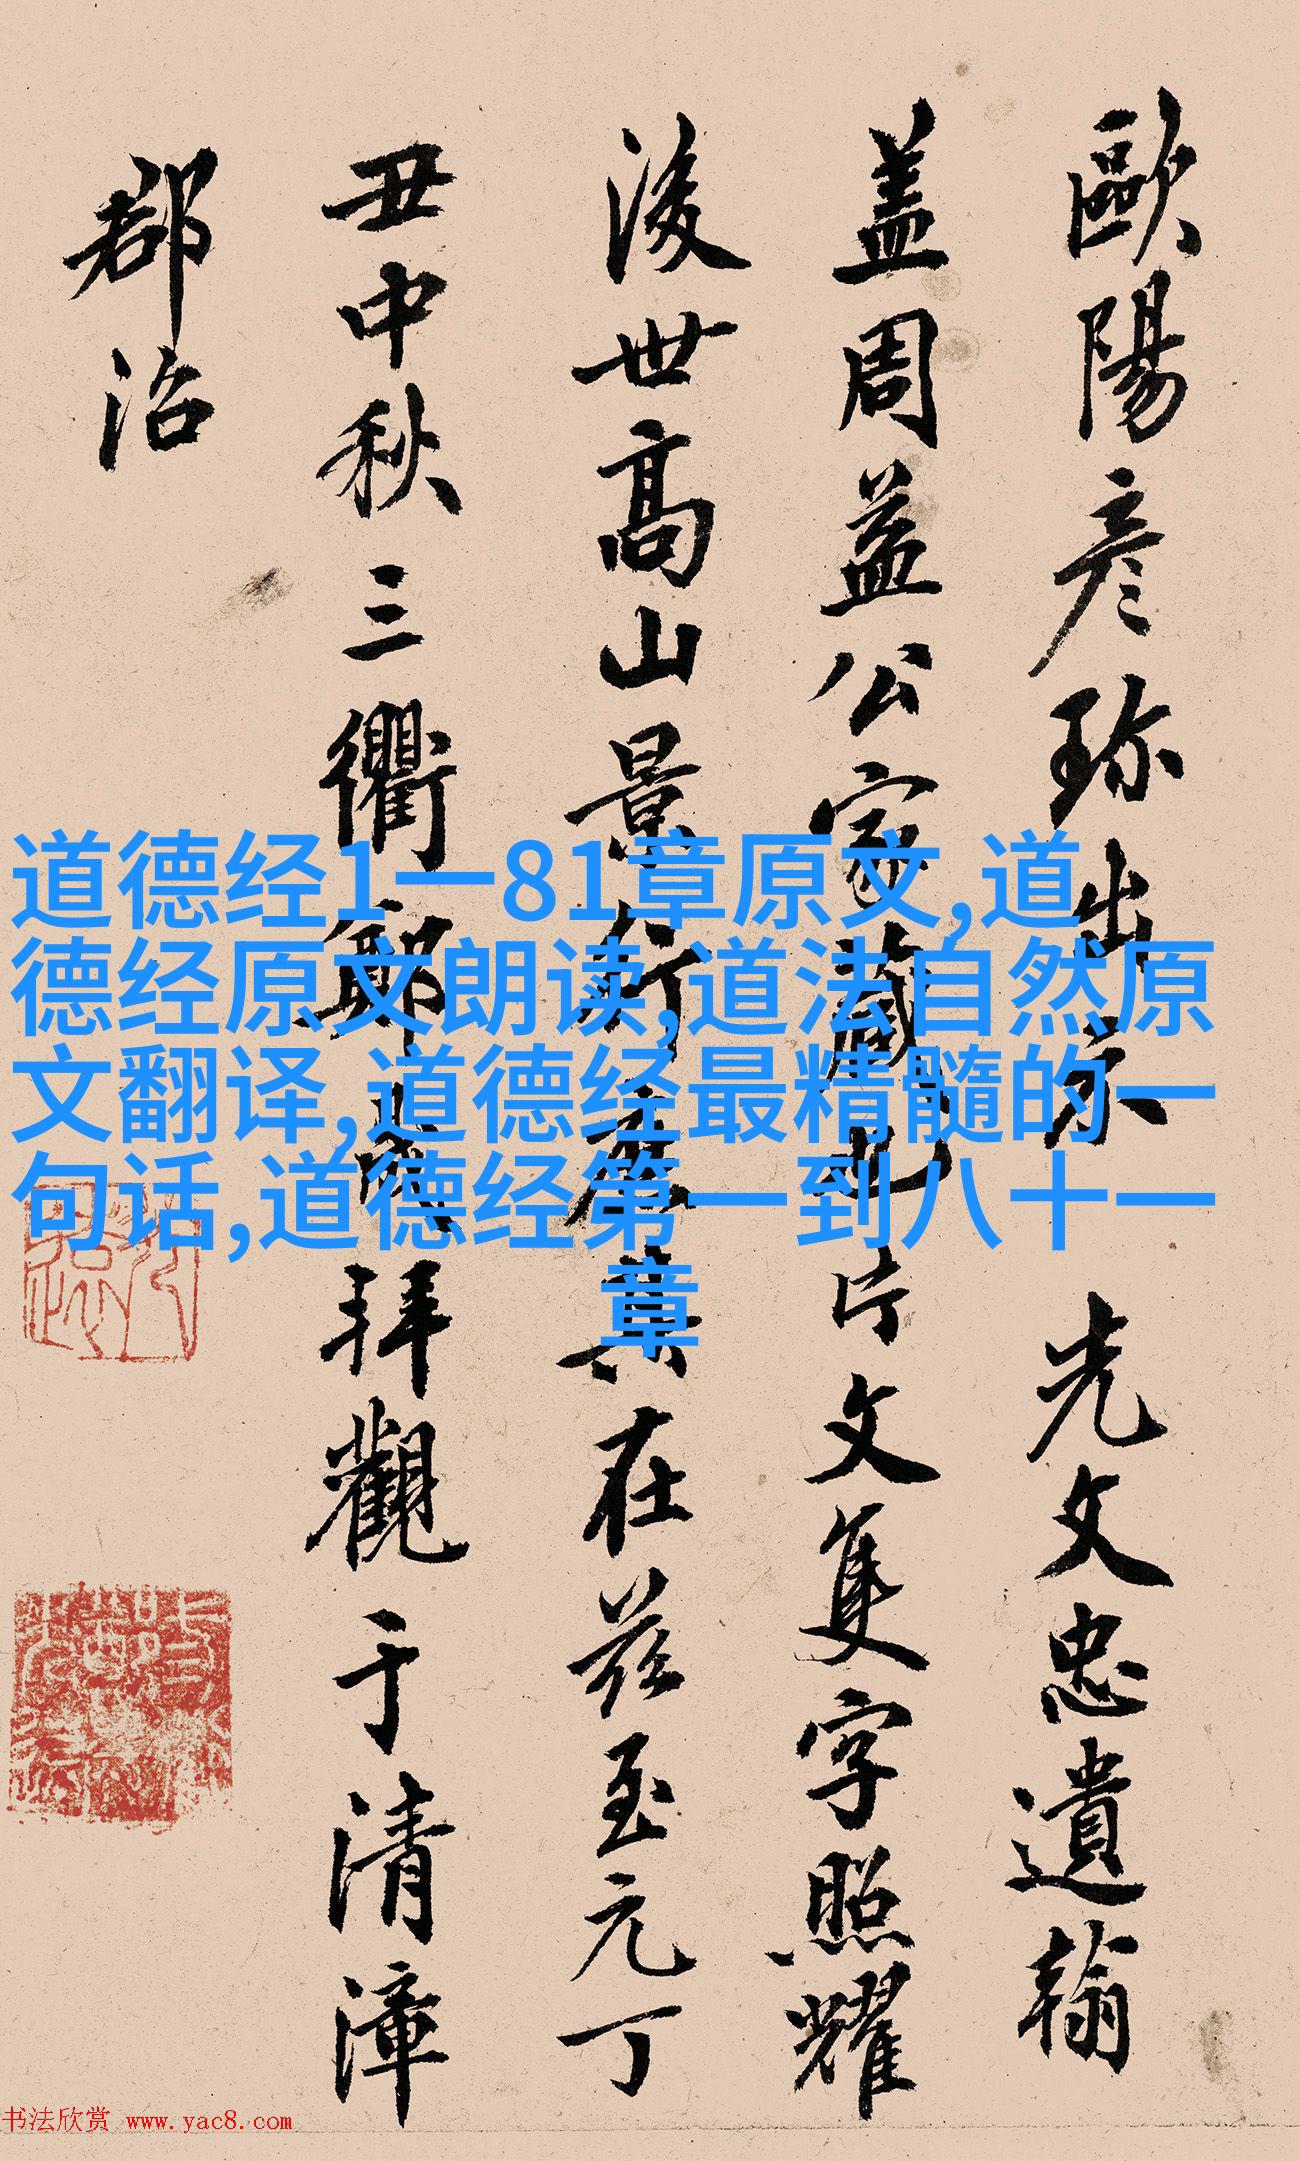 歐陽彦珎出示 光文忠遺翰
盖周益公家藏也片文隻字照耀
後世髙山景行庶其在兹至元丁
丑中秋三衢鄭 拜觀于清漳
郡治
道德经1一81章原文,道
德经原文朗读,道法自然原
文翻译,道德经最精髓的一
句话,道德经第一到八十一
章
书法欣赏 www.yac8.com